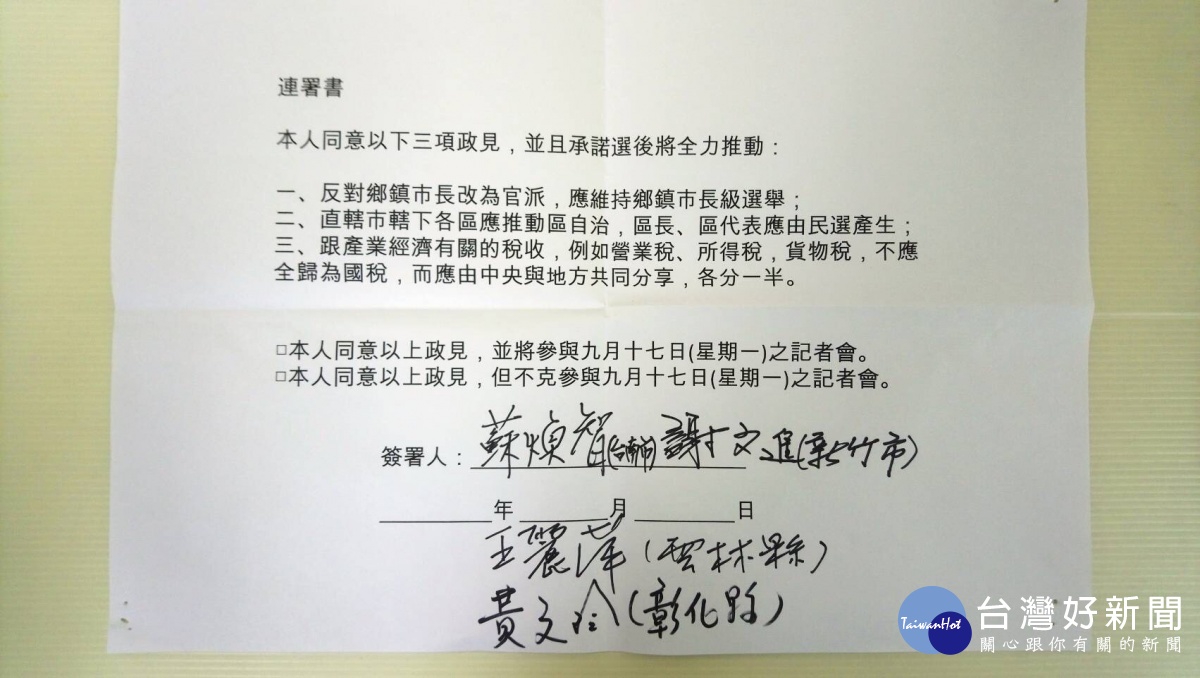 連署書
本人同意以下三項政見，並且承諾選後將全力推動：
一、反對鄉鎮市長改為官派，應維持鄉鎮市長級選舉；
二、直轄市轄下各區應推動區自治，區長、區代表應由民選產生；
三、跟產業經濟有關的稅收，例如營業稅、所得稅，貨物稅，不應
全歸為國稅，而應由中央與地方共同分享，各分一半。
□本人同意以上政見，並將參與九月十七日(星期一)之記者會。
□本人同意以上政見，但不克參與九月十七日(星期一)之記者會。
簽署人：蘇煥智(台南市)謝文進(新竹市)
年 月 日
王麗萍(雲林縣)
黃文玲(彰化縣)
TaiwanHot
台灣好新聞
關心跟你有關的新聞